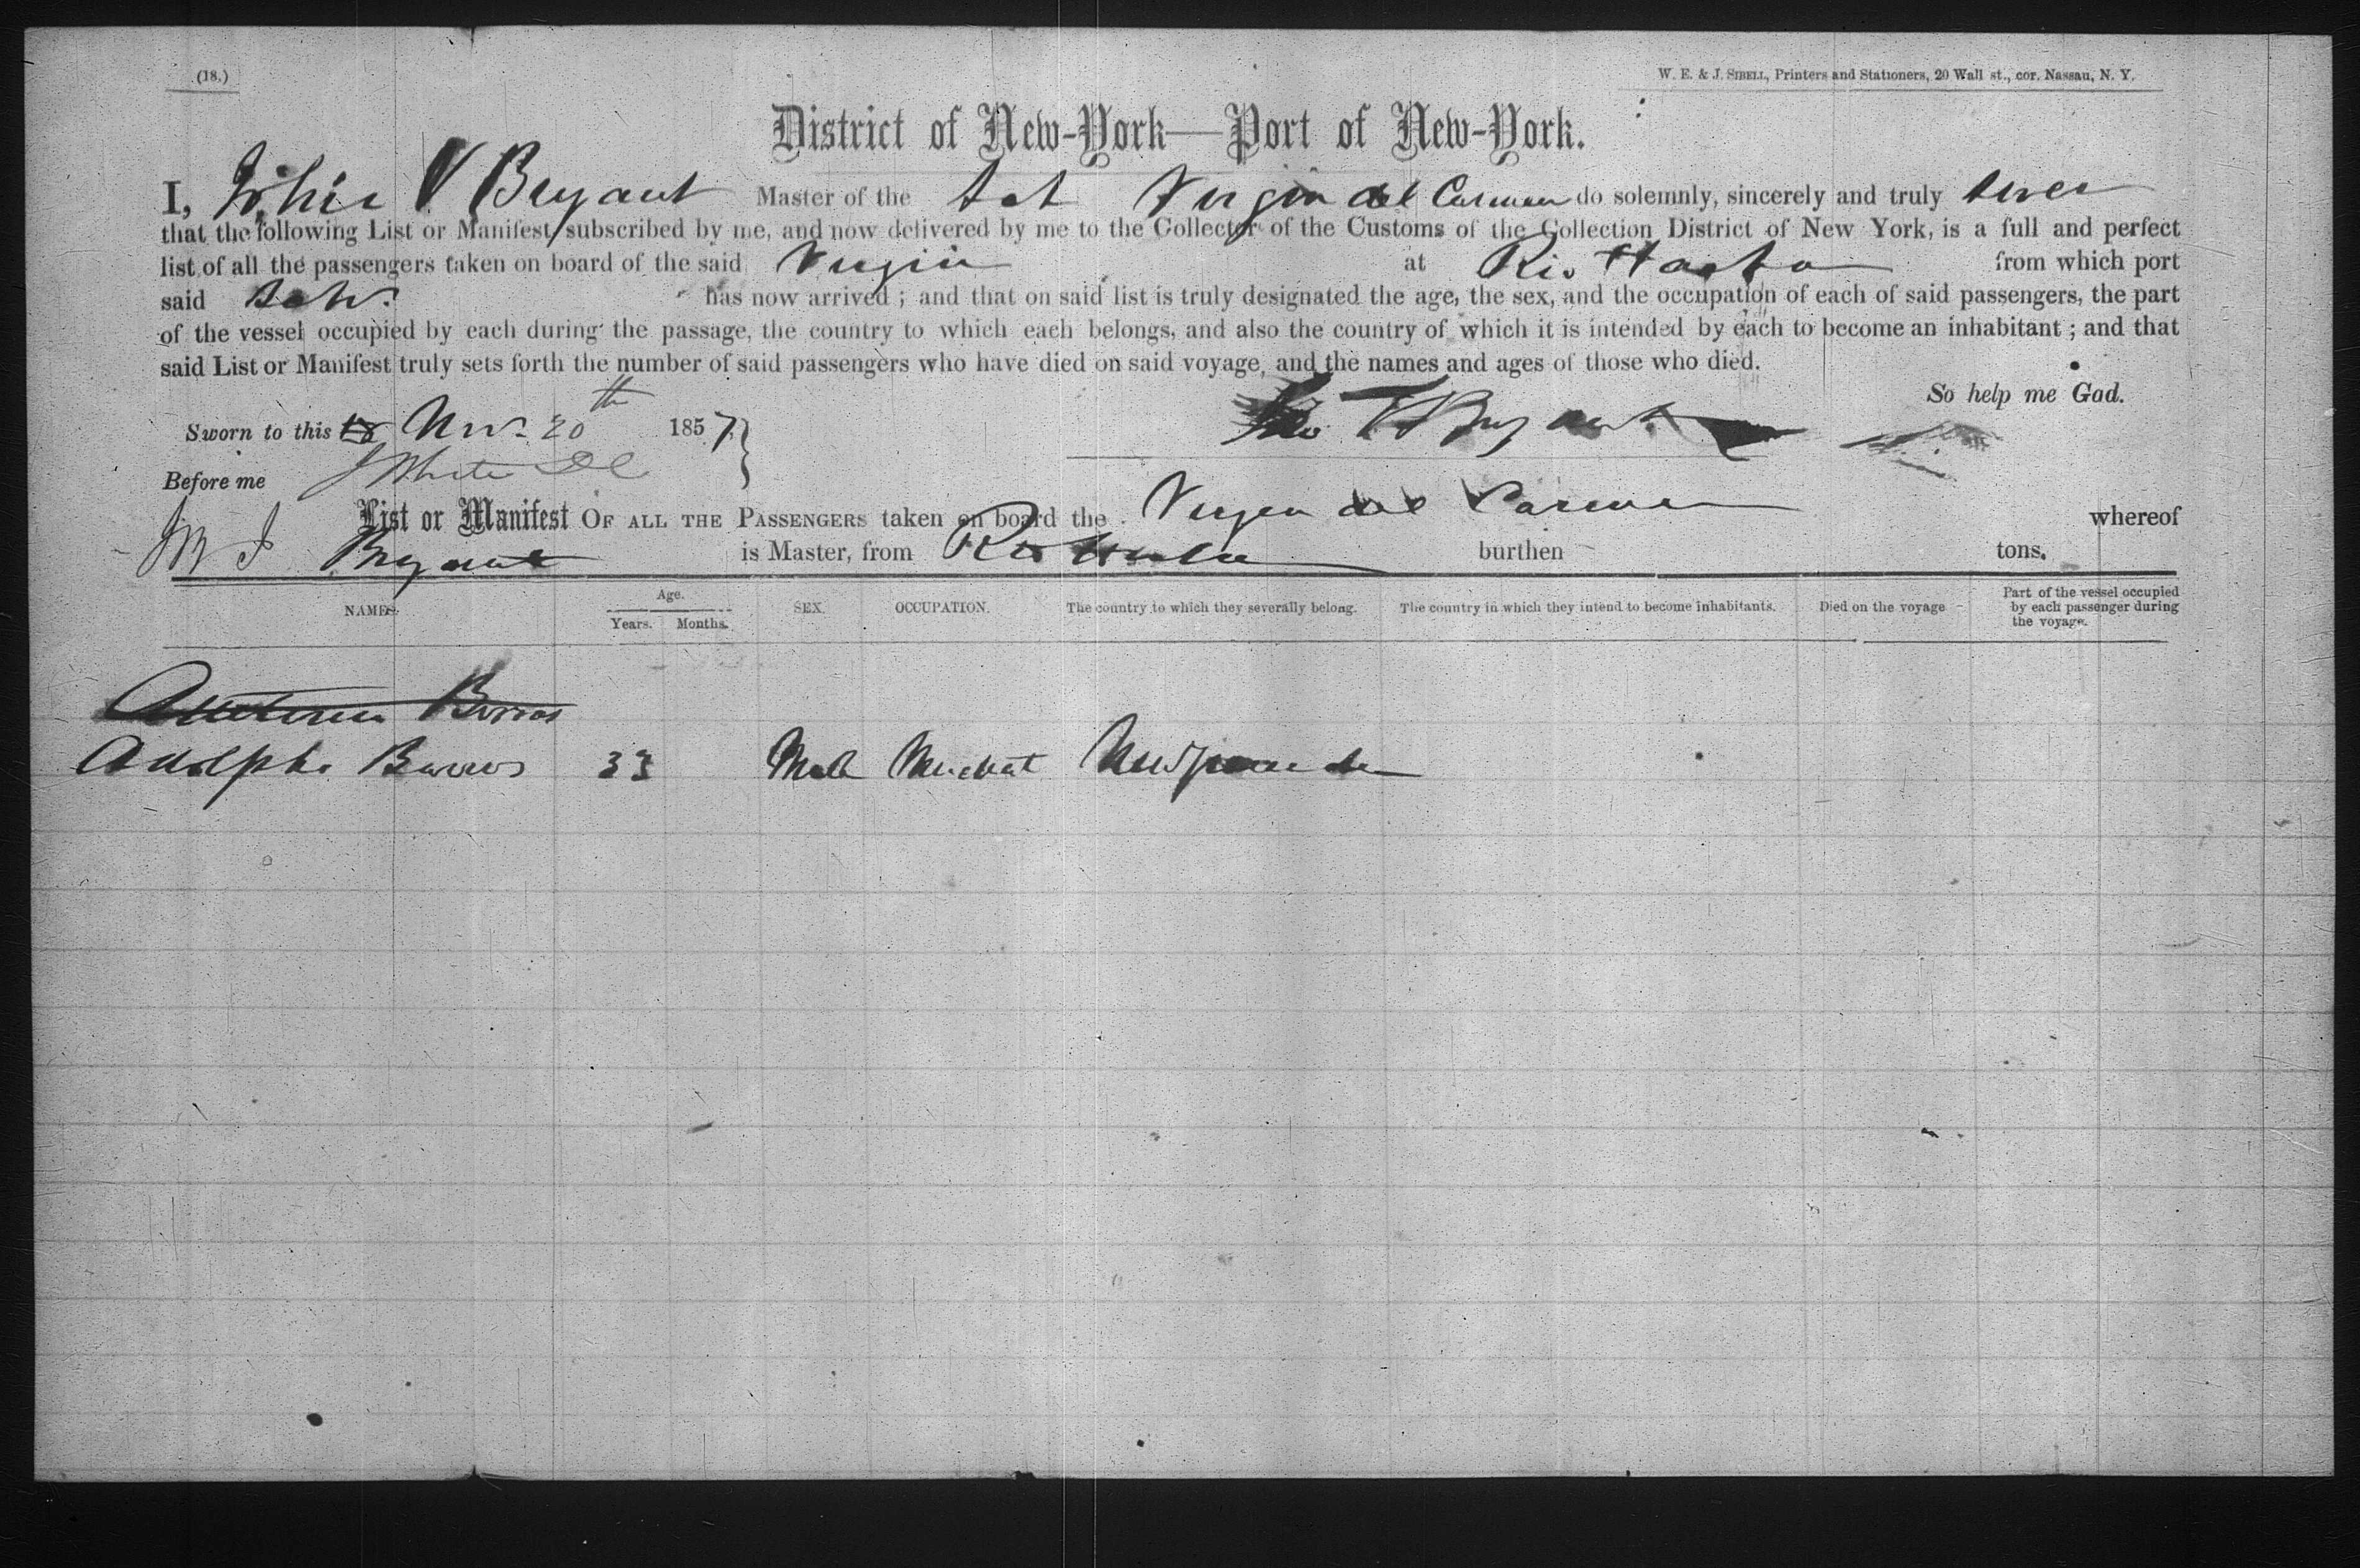 (18.)
W. E. & J. SIBELL, Printers and Stationers, 20 Wall st., cor. Nassau, N. Y.
District of New-York—Port of New-York.
I, Bryant Master of the Virgin del Carmen do solemnly, sincerely and truly swear
that the following List or Manifest, subscribed by me, and now delivered by me to the Collector of the Customs of the Collection District of New York, is a full and perfect
list of all the passengers taken on board of the said Virgin at Rio Hacha from which port
said Schr. has now arrived; and that on said list is truly designated the age, the sex, and the occupation of each of said passengers, the part
of the vessel occupied by each during the passage, the country to which each belongs, and also the country of which it is intended by each to become an inhabitant; and that
said List or Manifest truly sets forth the number of said passengers who have died on said voyage, and the names and ages of those who died.
So help me God.
Sworn to this Nov. 20th 1857
Bryant
Before me J White
List or Manifest OF ALL THE PASSENGERS taken on board the Virgen del Carmen whereof
Bryant is Master, from Rio Hacha burthen tons.
NAMES. Age. Years. Months. SEX. OCCUPATION. The country to which they severally belong. The country in which they intend to become inhabitants. Died on the voyage Part of the vessel occupied by each passenger during the voyage.
Adolpho 33 Male Merchant